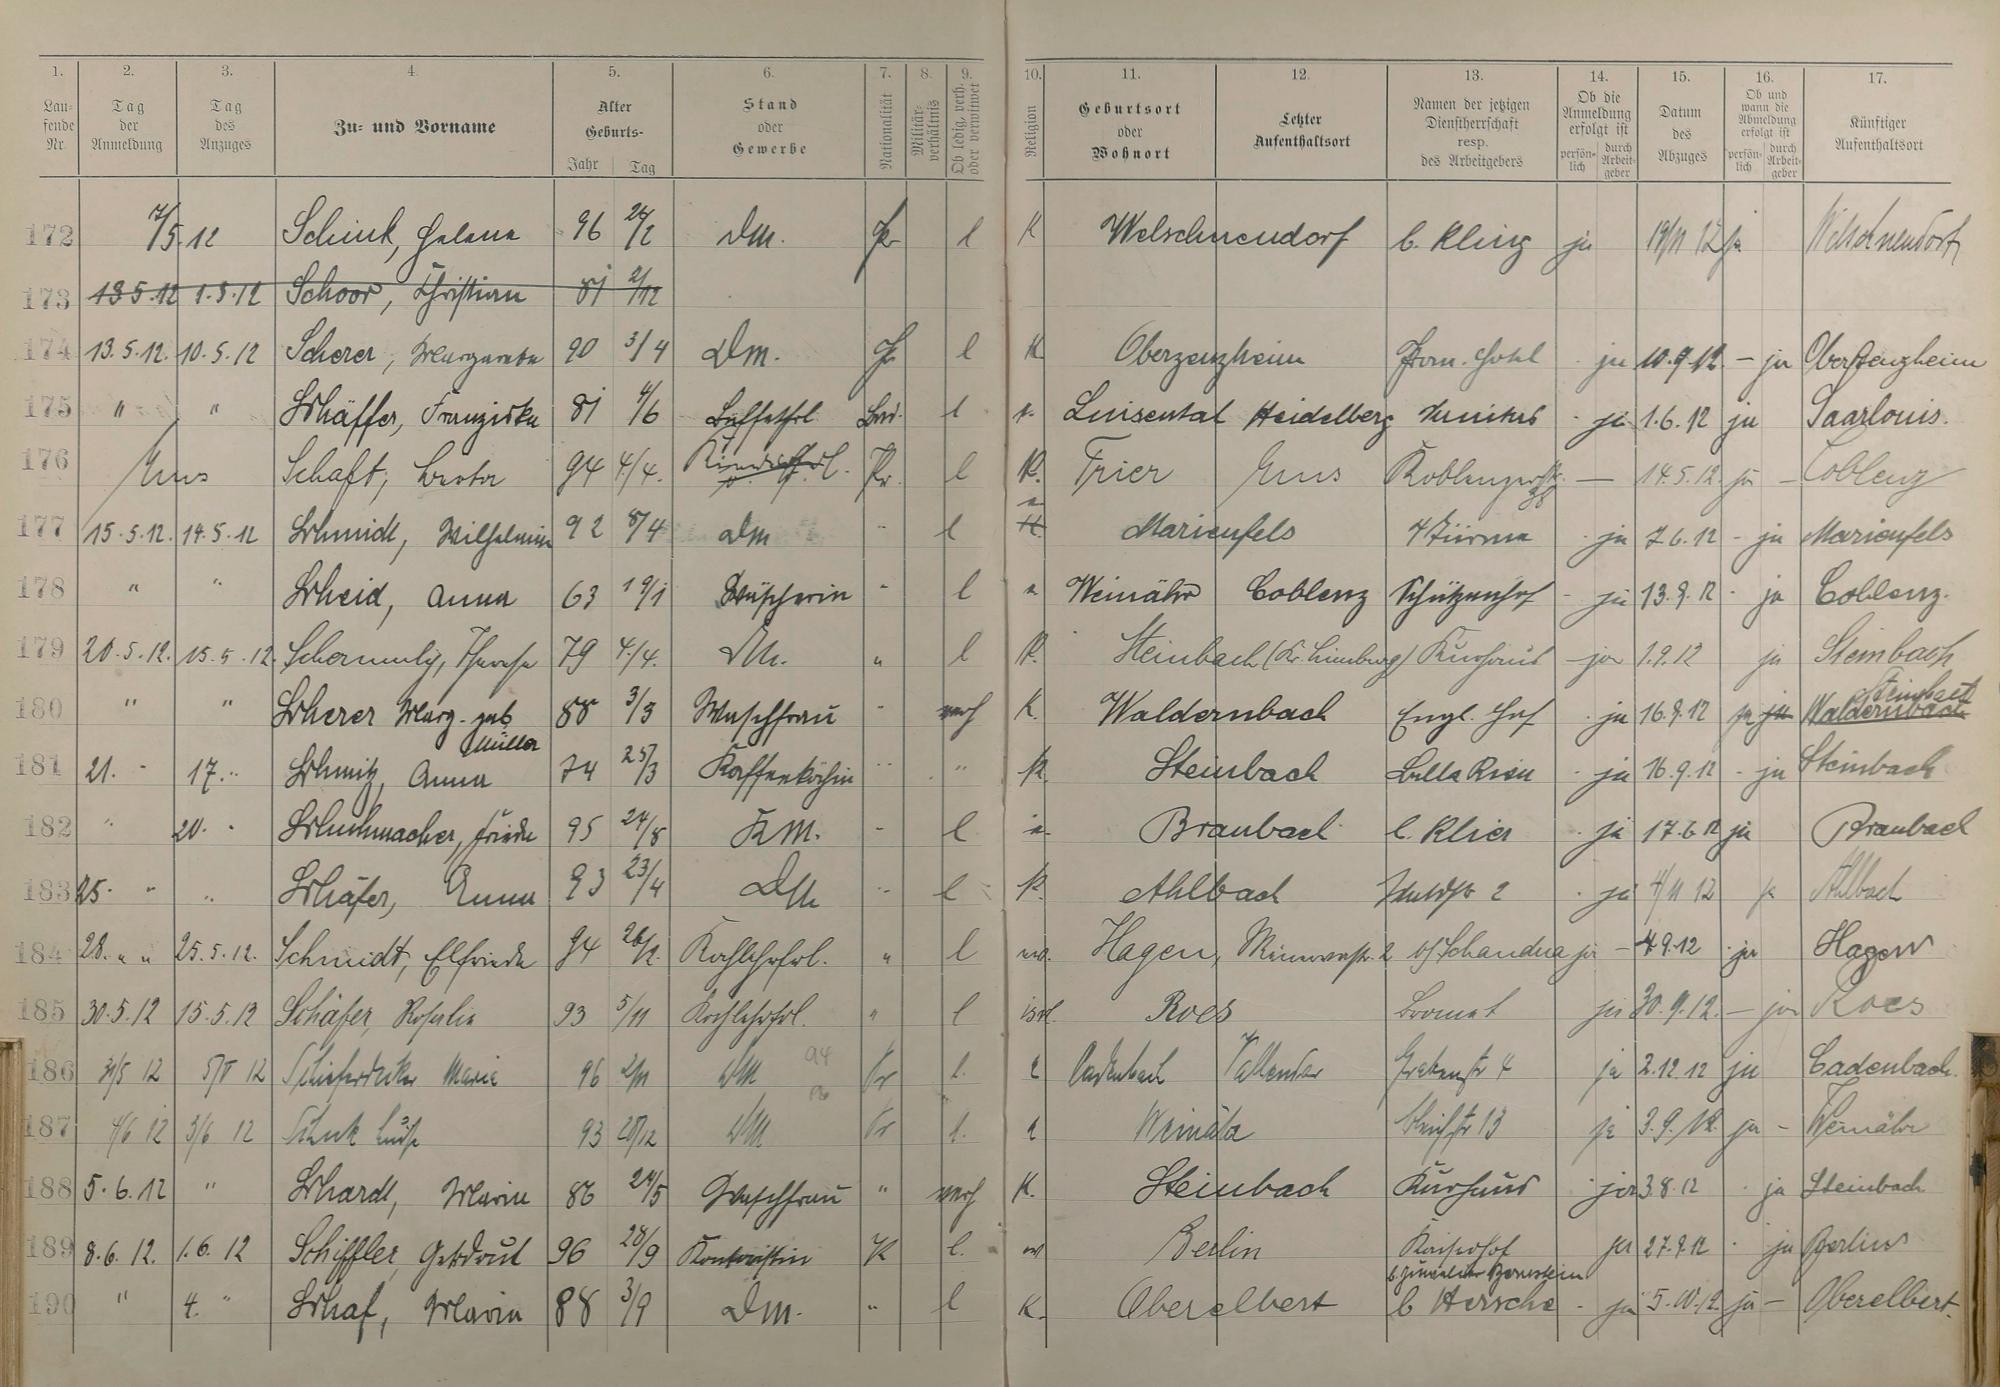 1. 2. 3. 4. 5. 6. 7. 8. 9. 10. 11. 12. 13. 14. 15. 16. 17.
Laufende Nr. Tag der Anmeldung Tag des Anzuges Zu- und Vorname Alter Geburts- Jahr Tag Stand oder Gewerbe Nationalität Militärverhältnis Ob ledig, verh. oder verwitwet Religion Geburtsort oder Wohnort Letzter Aufenthaltsort Namen der jetzigen Dienstherrschaft resp. des Arbeitgebers Ob die Anmeldung erfolgt ist persönlich durch Arbeitgeber Datum des Abzuges Ob und wann die Abmeldung erfolgt ist persönlich durch Arbeitgeber Künftiger Aufenthaltsort
172 7/5.12 Schink, Helene 96 Dm. Pr l K Welschneudorf b. Kling ja 19/11 12 ja Welschneudorf
173 13.5.12 1.5.12 Schoor, Christian 81 2/12
174 13.5.12. 10.5.12 Scherer, Margareta 90 3/4 Dm. Pr l K Oberzeuzheim ja 10.9.12 – ja Oberzeuzheim
175 " " Schäffer, Franziska 81 4/6 Buffetfrl. l K. Luisental Heidelberg ja 1.6.12 ja Saarlouis.
176 Ems Schaft, 94 4/4. Pr. l K. Trier Ems Koblenzerstr. — 14.5.12. ja – Coblenz
177 15.5.12. 14.5.12 Schmidt, Wilhelmine 92 8/4 Dm " l Marienfels ja 7.6.12 - ja Marienfels
178 " " Scheid, Anna 63 19/1 Wäscherin " l Weinähr Coblenz Schützenhof - ja 13.9.12 - ja Coblenz.
179 20.5.12. 15.5.12. Schermuly, Therese 79 4./4. Dm. " l K. Steinbach (Kr. Limburg) Kurhaus – ja 1.9.12 ja Steinbach
180 " " Scherer Marg. geb. Müller 88 3/3 Waschfrau " verh K. Waldernbach Engl. Hof ja 16.9.12 ja ja Waldernbach Steinbach
181 21. " 17. " Schmitz, Anna 74 25/3 Kaffeeköchin " " K. Steinbach Bella Riva ja 16.9.12 - ja Steinbach
182 " 20. " Schuhmacher, Frieda 95 24/8 KM. " l Braubach b. Klier ja 17.6.12 ja Braubach
183 25. " " Schäfer, Anna 93 23/4 Dm " l K. Ahlbach ja 4/11 12 ja Ahlbach
184 28. " " 25.5.12. Schmidt, Elfriede 94 Kochlehrfrl. " l Hagen, b/ Schandua ja – 4.9.12 ja Hagen
185 30.5.12 15.5.12 Schäfer, Rosalie 93 5/11 Kochlehrfrl. " l isrl. Roes Bromet ja 30.9.12. – ja Roes
186 31/5 12 5/5 12 Marie 96 2/11 DM Pr l. Cadenbach Vallendar Grabenstr 4 ja 2.12.12 ja Cadenbach.
187 4/6 12 3/6 12 Schuk Luise 93 DM Pr l. Weinähr 13 ja 3.9.12. ja – Weinähr
188 5.6.12 " Schardt, Maria 86 24/5 Waschfrau " verh K. Steinbach Kurhaus ja 3.8.12 ja Steinbach
189 8.6.12. 1.6.12 Schiffler, Gertrud 96 28/9 Kontoristin l. Berlin Kaiserhof b. Juwelier Bernstein ja 27.9.12 ja Berlin
190 " 4. " Schaf, Maria 88 3/9 Dm. " l K. Oberelbert b Hersche ja 5.10.12. ja – Oberelbert.